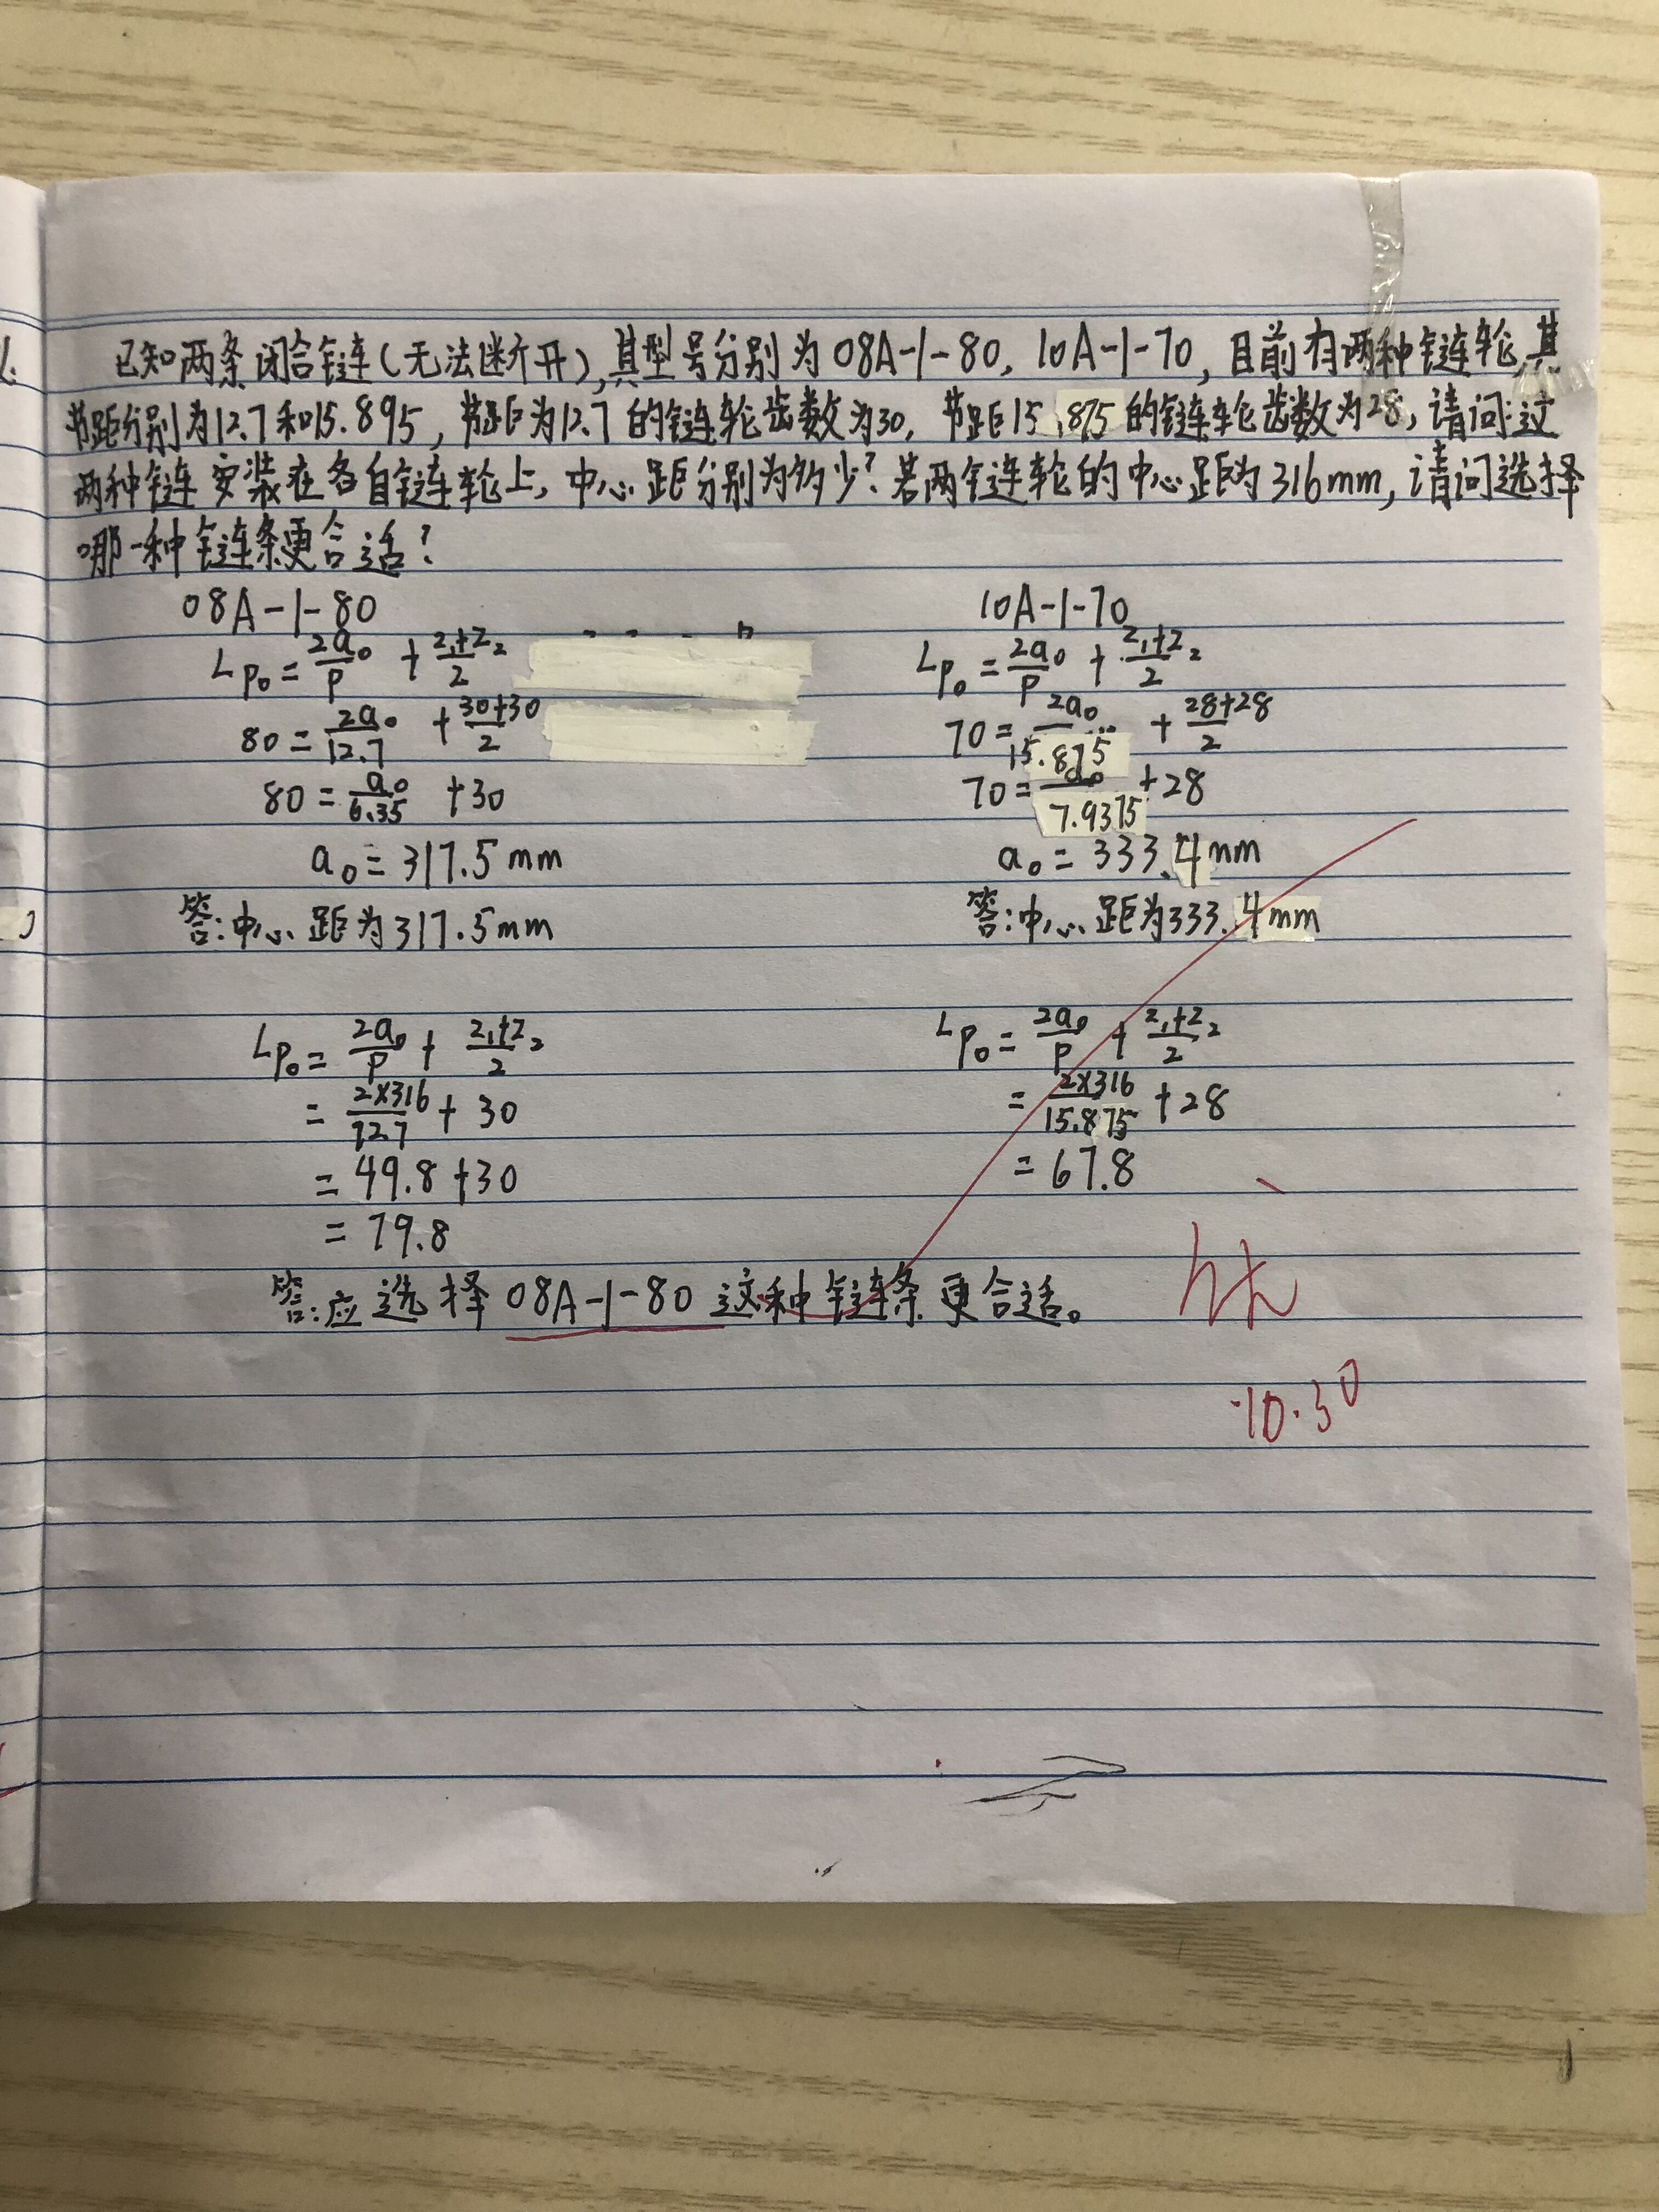 1.
已知两条闭合链(无法断开),其型号分别为08A-1-80,10A-1-70,目前有两种链轮,其
节距分别为12.7和15.895,节距为12.7的链轮齿数为30,节距15.875的链轮齿数为28,请问:这
两种链安装在各自链轮上,中心距分别为多少?若两链轮的中心距为316mm,请问选择
哪一种链条更合适?
08A-1-80
Lp₀=2a₀/p+(z₁+z₂)/2
80=2a₀/12.7+(30+30)/2
80=a₀/6.35+30
a₀=317.5mm
答:中心距为317.5mm
10A-1-70
Lp₀=2a₀/p+(z₁+z₂)/2
70=2a₀/15.875+(28+28)/2
70=a₀/7.9375+28
a₀=333.4mm
答:中心距为333.4mm
Lp₀=2a₀/p+(z₁+z₂)/2
=2×316/12.7+30
=49.8+30
=79.8
Lp₀=2a₀/p+(z₁+z₂)/2
=2×316/15.875+28
=67.8
答:应选择08A-1-80这种链条更合适。
优
10.30